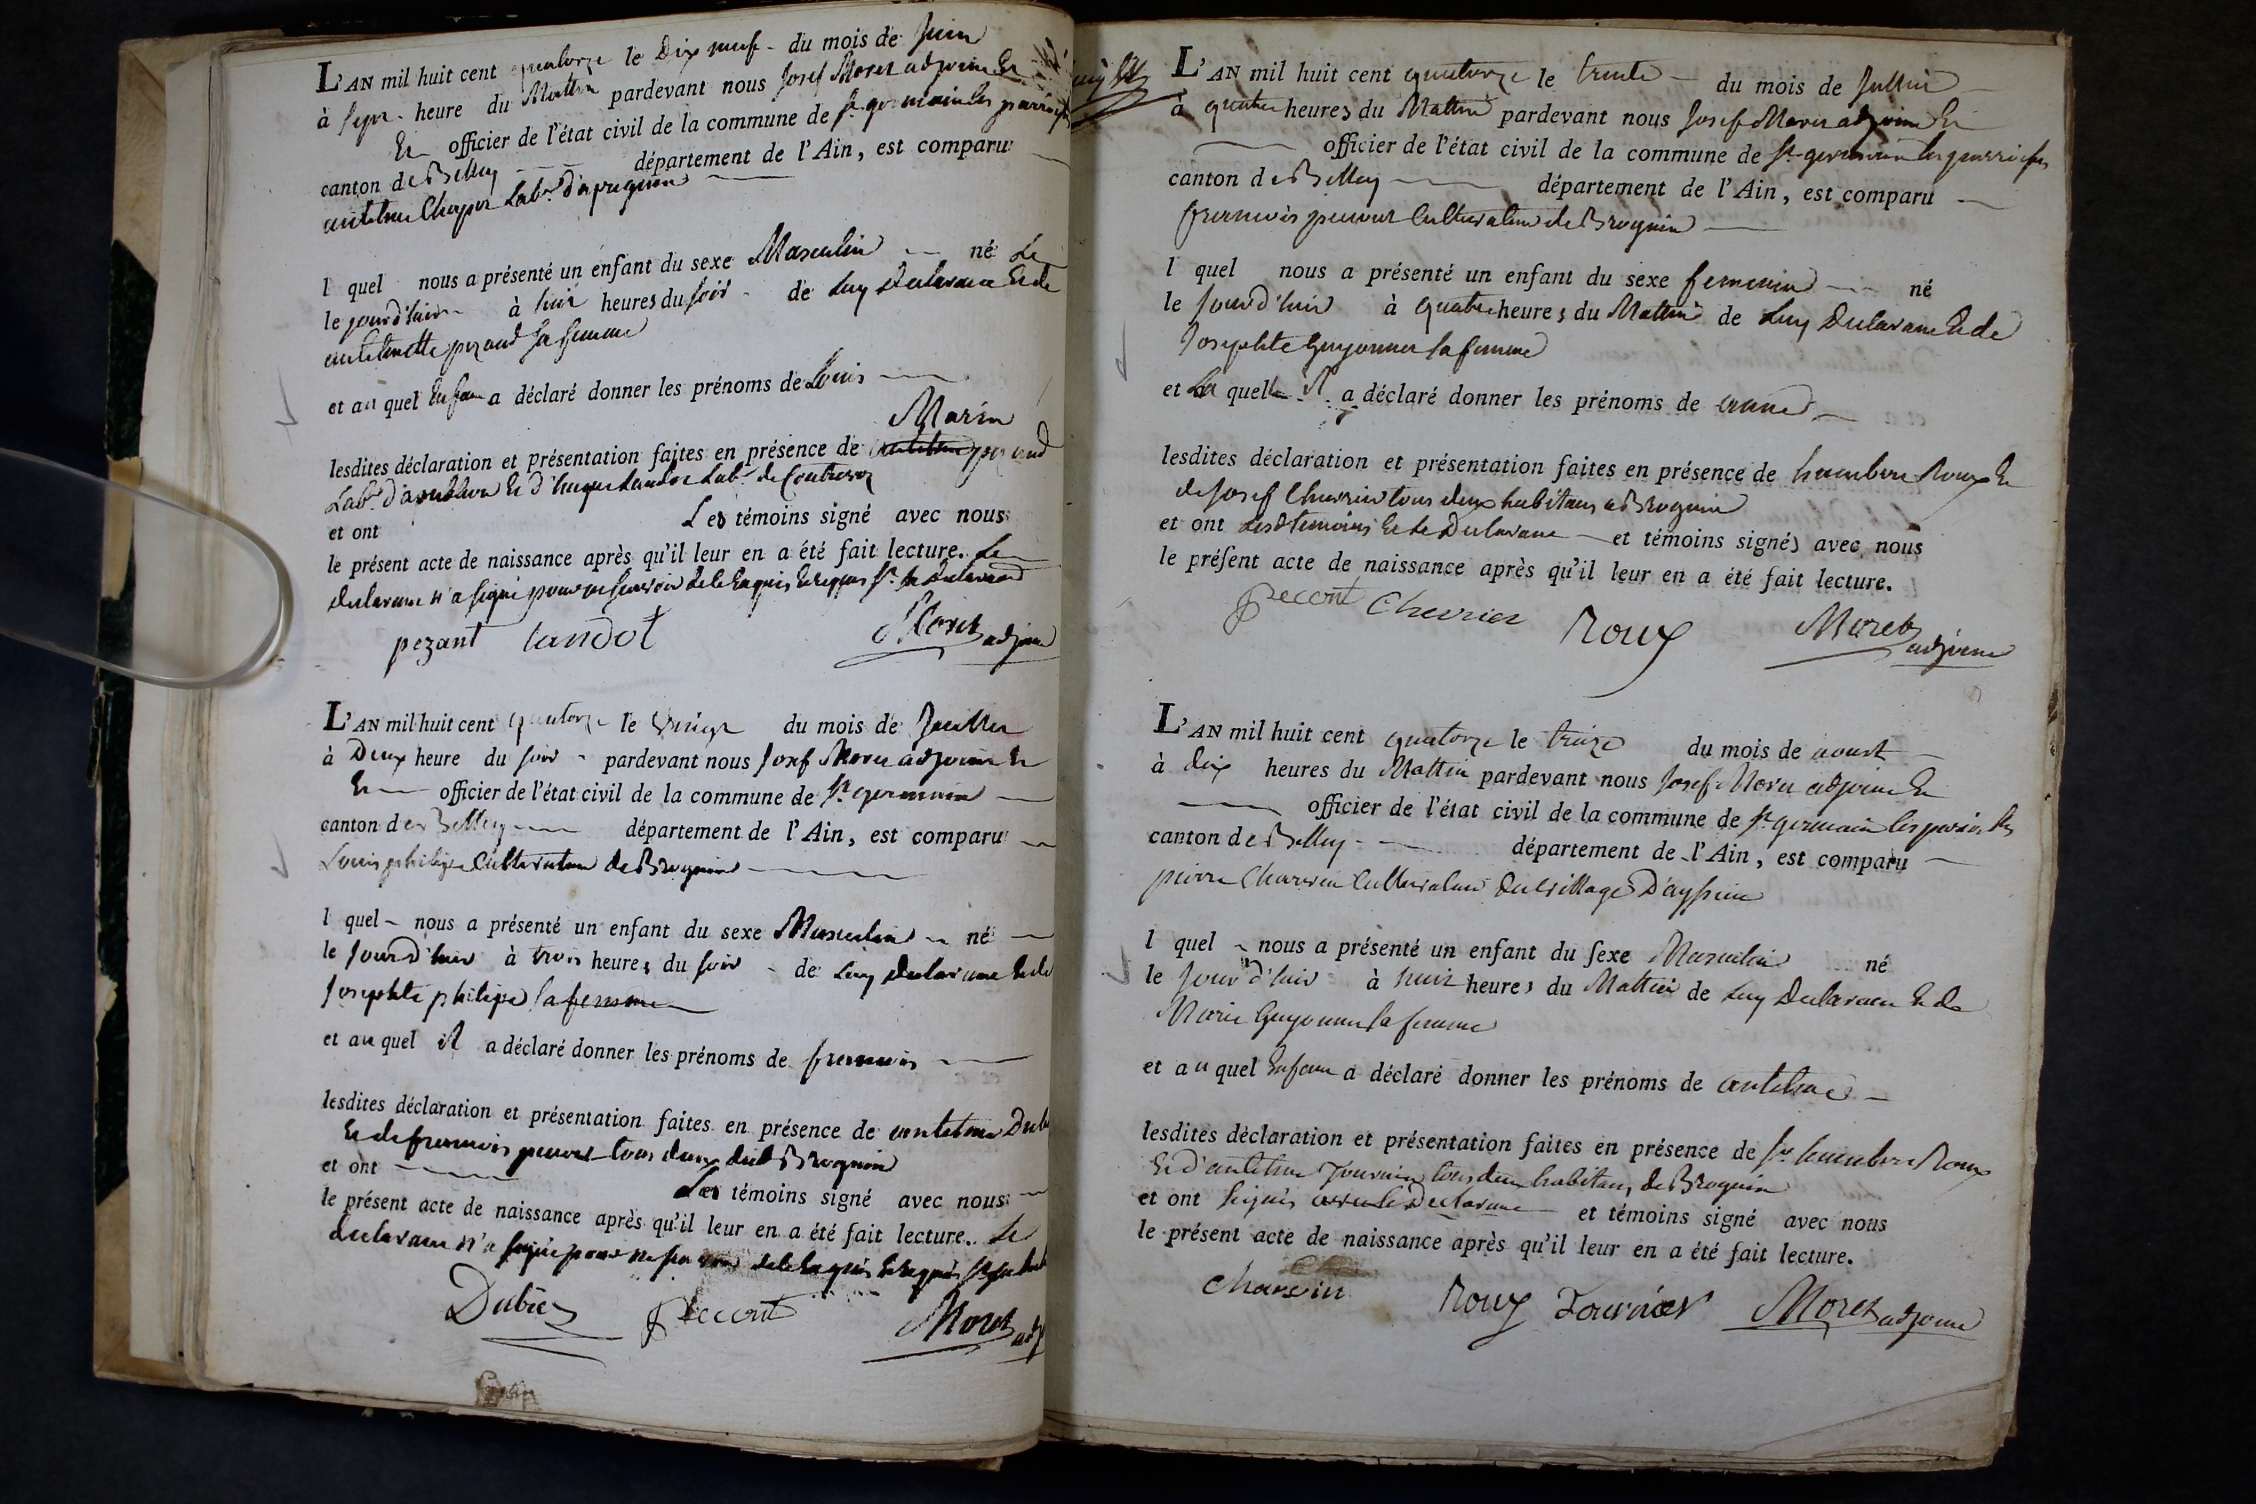 L'AN mil huit cent quatorze le Dix neuf du mois de Juin
à sept heure du Mattin pardevant nous Josef Moret adjoint Et
Et officier de l'état civil de la commune de St germain les parroisses
canton de Belley département de l'Ain, est comparu
anthelme Chapot Lab.r
l quel nous a présenté un enfant du sexe Masculin né Le
le jourd'huit à huit heures du soir de Luy Declarant Et de
anthelmette pezand sa femme
et au quel Enfant a déclaré donner les prénoms de Louis
Marin
lesdites déclaration et présentation faites en présence de anthelme pezand
Lab.r Et d'hugue Landot Lab.r de Contrevoz
et ont Les témoins signé avec nous
le présent acte de naissance après qu'il leur en a été fait lecture. Le
declarant n'a signé pour ne savoir de ce Enquis Et requis
pezant Landot Moret adjoint
L'AN mil huit cent quatorze le vingt du mois de Juillet
à Deux heure du soir pardevant nous Josef Moret adjoint Et
Et officier de l'état civil de la commune de St germain
canton de Belley département de l'Ain, est comparu
Louis philipe Cultivateur de Brognin
l quel nous a présenté un enfant du sexe Masculin né
le Jourd'huit à trois heures du soir de Luy declarant Et de
Josephte philipe sa femme
et au quel il a déclaré donner les prénoms de francois
lesdites déclaration et présentation faites en présence de anthelme Dub
Et de francois peccout tous deux dud Brognin
et ont Les témoins signé avec nous
le présent acte de naissance après qu'il leur en a été fait lecture. Le
declarant n'a signé pour ne savoir de ce Enquis Et requis
Dubie peccout Moret adj
L'AN mil huit cent quatorze le trente du mois de Juillet
à quatre heures du Mattin pardevant nous Josef Moret adjoint Et
officier de l'état civil de la commune de St germain les parroisses
canton de Belley département de l'Ain, est comparu
francois peccout Cultivateur de Brognin
l quel nous a présenté un enfant du sexe femenin né
le Jourd'huit à quatre heures du Mattin de Luy Declarant Et de
Josephte Guyonnet sa femme
et La quelle il a déclaré donner les prénoms de anne
lesdites déclaration et présentation faites en présence de humbert Roux Et
de Josef Chevrier tous deux habitans a Brognin
et ont Lesd temoins Et le Declarant et témoins signés avec nous
le présent acte de naissance après qu'il leur en a été fait lecture.
peccout Chevrier Roux Moret adjoint
L'AN mil huit cent quatorze le treize du mois de aoust
à dix heures du Mattin pardevant nous Josef Moret adjoint Et
officier de l'état civil de la commune de St germain les paroisses
canton de Belley département de l'Ain, est comparu
pierre Charvin Cultivateur du village D'appregnin
l quel nous a présenté un enfant du sexe Masculin né
le Jourd'huit à huit heures du Mattin de Luy Declarant Et de
Marie Guyonnet sa femme
et au quel Enfant a déclaré donner les prénoms de anthelme
lesdites déclaration et présentation faites en présence de Sr humbert Roux
Et d'anthelme Tournier tous deux habitans de Brognin
et ont signés avec le Declarant et témoins signé avec nous
le présent acte de naissance après qu'il leur en a été fait lecture.
Charvin Roux Tournier Moret adjoint